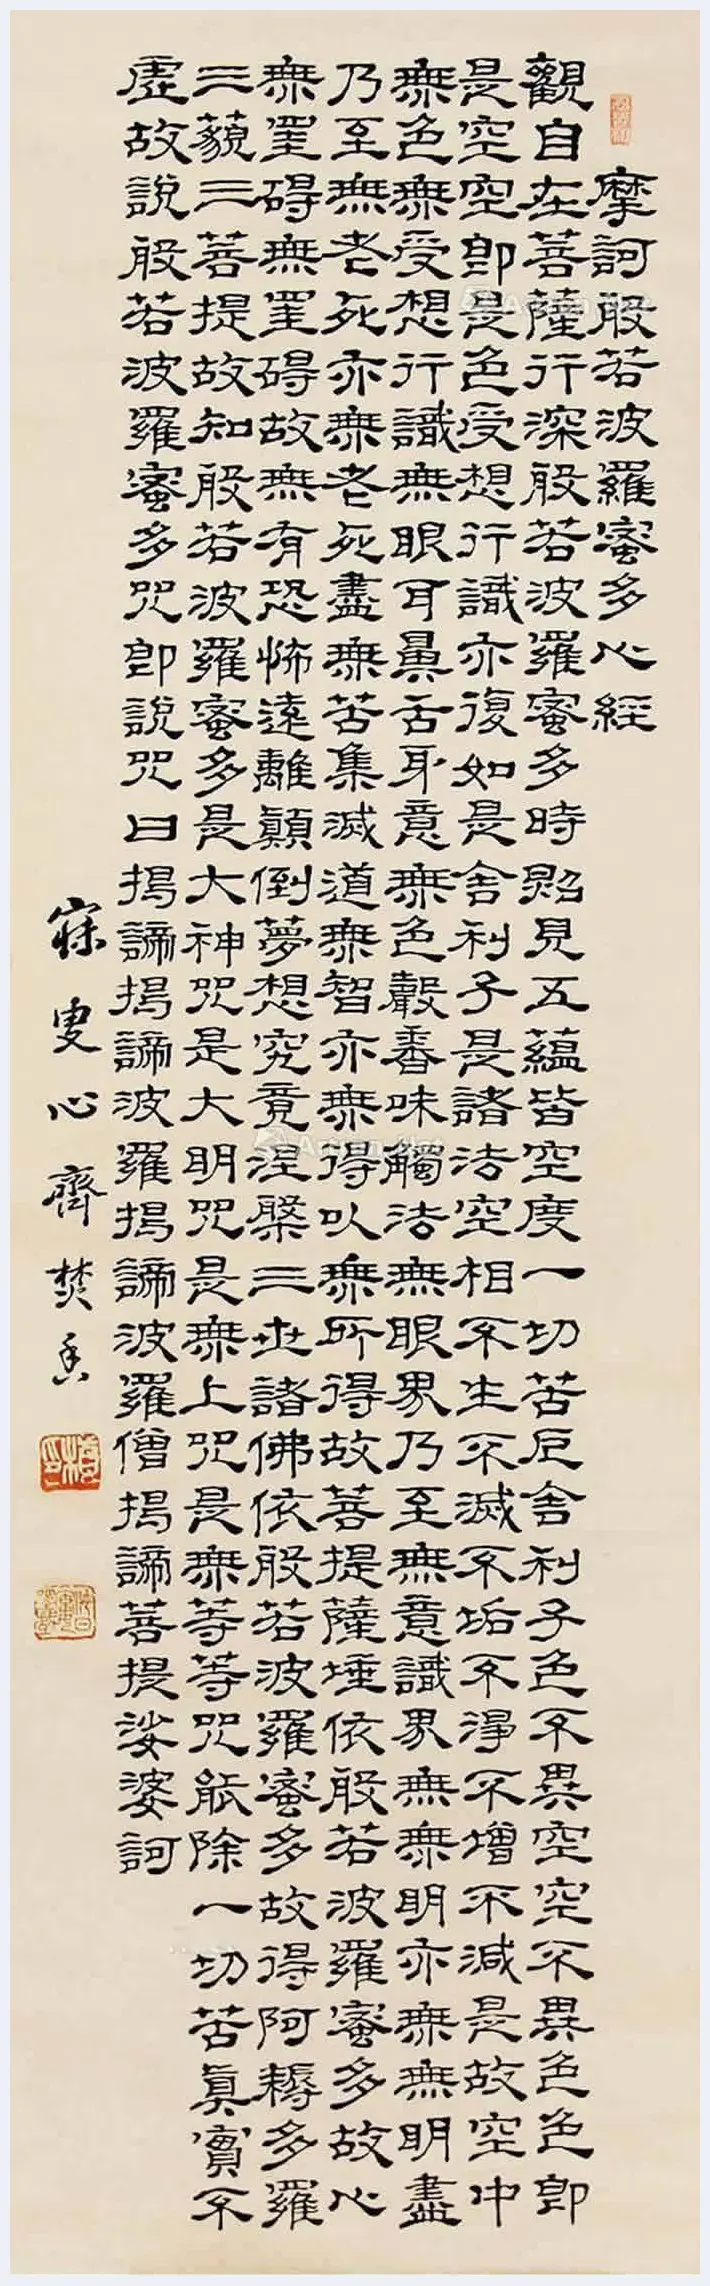 摩訶般若波羅蜜多心經
觀自在菩薩行深般若波羅蜜多時照見五蘊皆空度一切苦厄舍利子色不異空空不異色色即
是空空即是色受想行識亦復如是舍利子是諸法空相不生不滅不垢不淨不增不減是故空中
無色無受想行識無眼耳鼻舌身意無色聲香味觸法無眼界乃至無意識界無無明亦無無明盡
乃至無老死亦無老死盡無苦集滅道無智亦無得以無所得故菩提薩埵依般若波羅蜜多故心
無罣碍無罣碍故無有恐怖遠離顛倒夢想究竟涅槃三世諸佛依般若波羅蜜多故得阿耨多羅
三藐三菩提故知般若波羅蜜多是大神咒是大明咒是無上咒是無等等咒能除一切苦真實不
虛故說般若波羅蜜多咒即說咒曰揭諦揭諦波羅揭諦波羅僧揭諦菩提娑婆訶
寐叟心齊焚香
Artron.Net